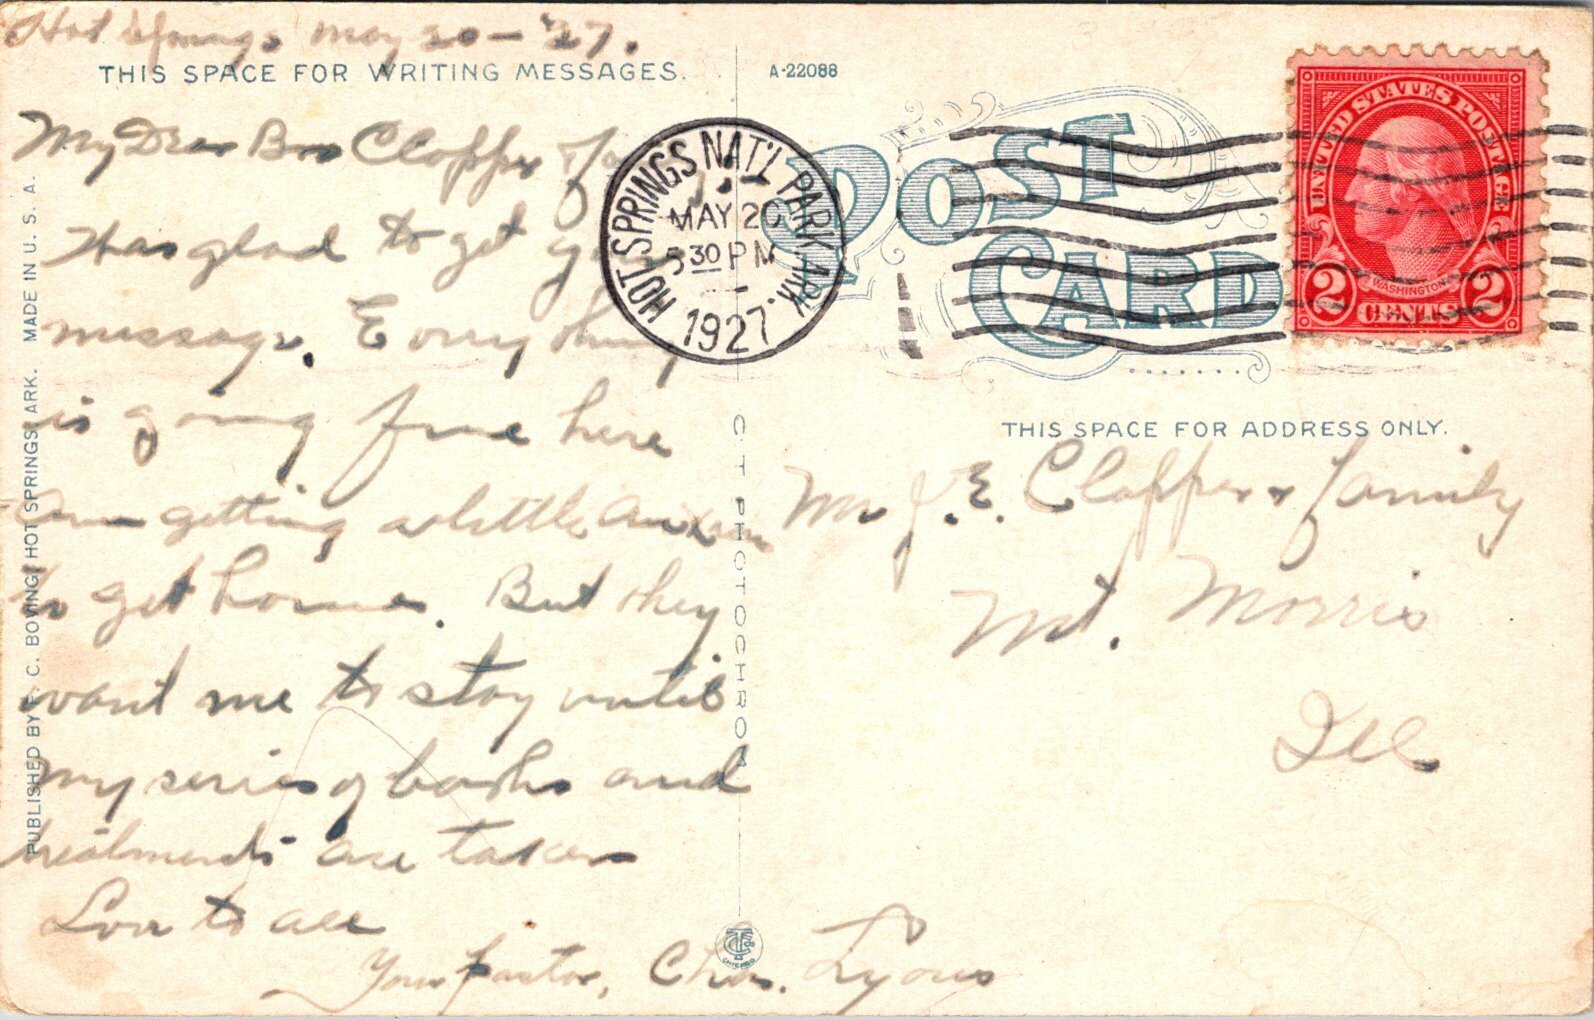 Hot Springs May 20 - '27.
THIS SPACE FOR WRITING MESSAGES.
My Dear Bro Clapper & Fam
Was glad to get your
message. Every thing
is going fine here
Am getting a little anxious
to get home. But they
want me to stay until
my series of baths and
treatments are taken
Love to all
Your pastor, Chas. Lyons
PUBLISHED BY C. BOVING, HOT SPRINGS, ARK. MADE IN U. S. A.
C. T. PHOTOCHROM
A-22088
POST
CARD
HOT SPRINGS NAT'L PARK ARK.
MAY 20
5 30 PM
1927
UNITED STATES POSTAGE
WASHINGTON
2 CENTS 2
THIS SPACE FOR ADDRESS ONLY.
Mr J. E. Clapper & family
Mt. Morris
Ill
CHICAGO